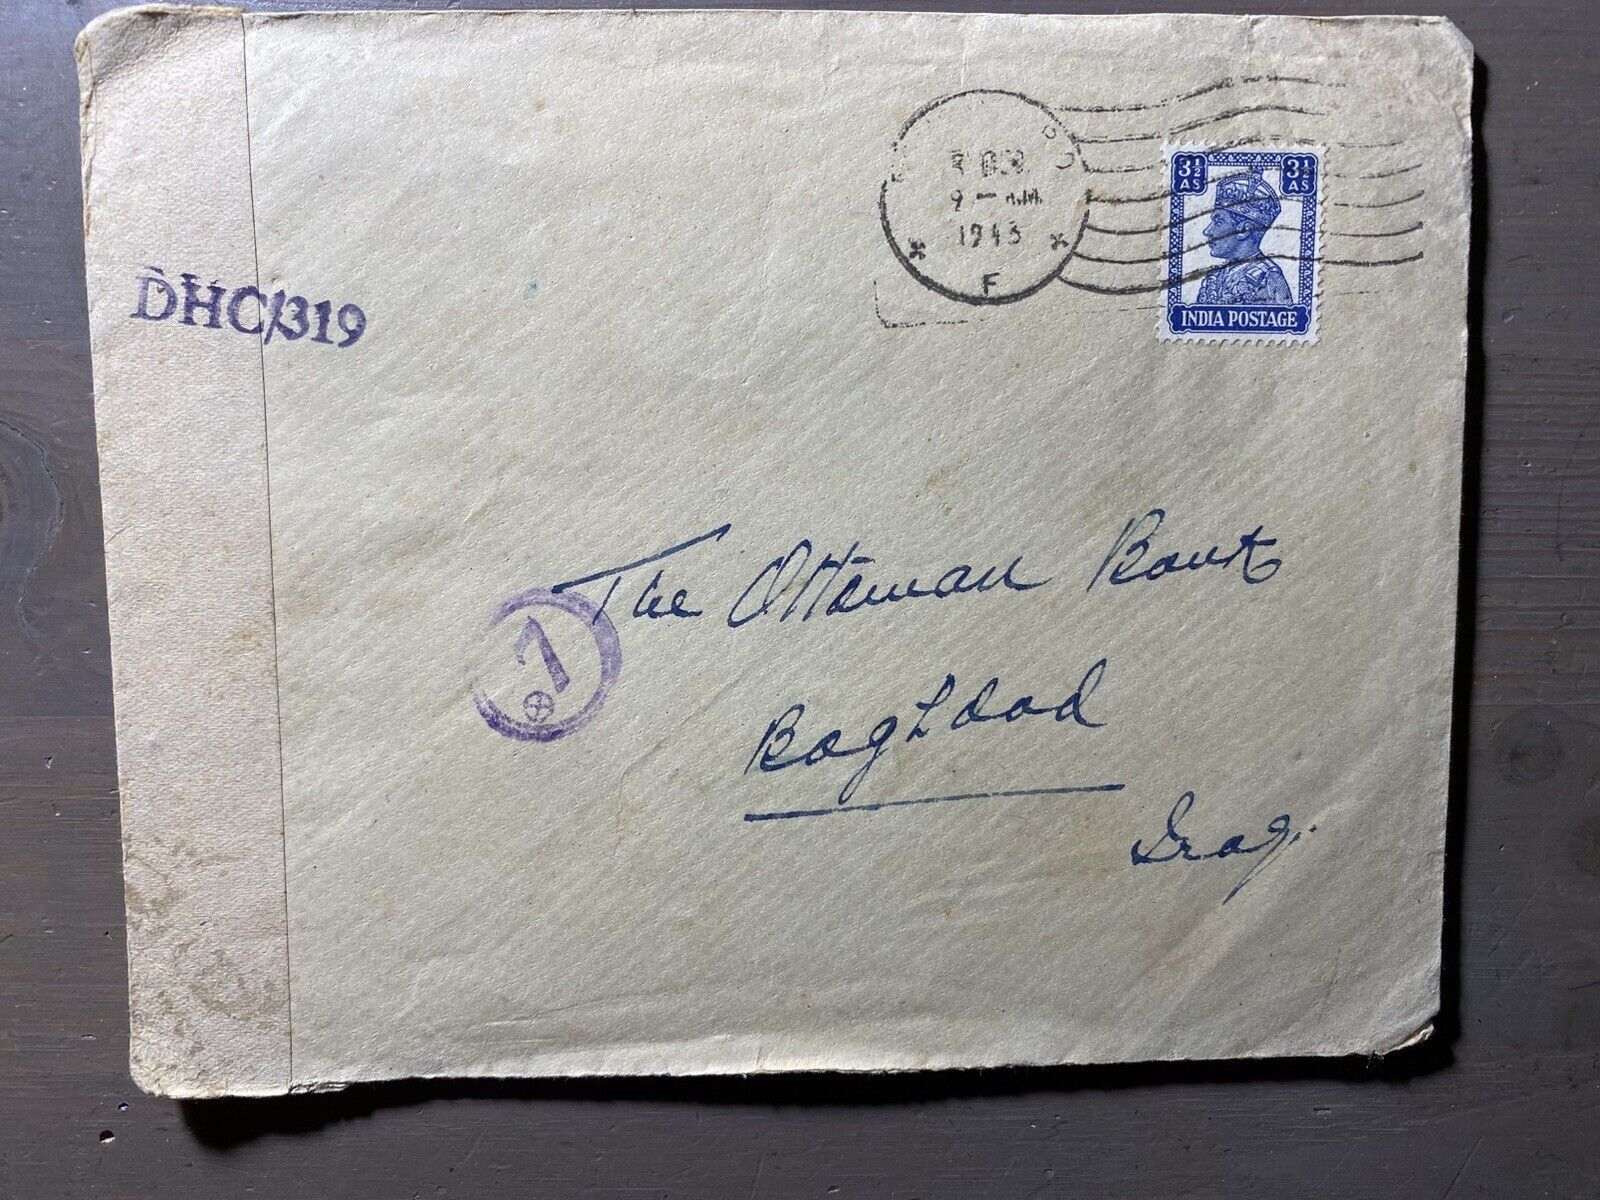 DEC
9 - AM
1943
F
3½ AS 3½ AS
INDIA POSTAGE
DHC/319
The Ottoman Bank
7
Baghdad
Iraq.